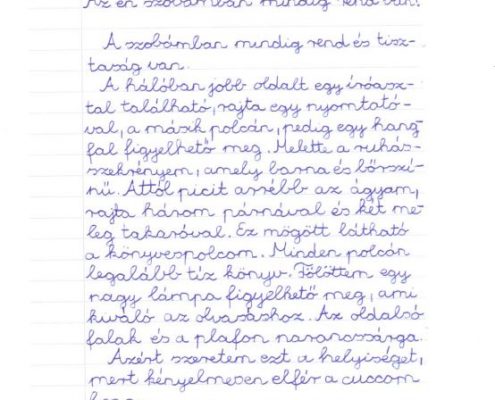 Az én szobámban mindig rend van!
A szobámban mindig rend és tisz-
taság van.
A hálóban jobb oldalt egy íróasz-
tal található, rajta egy nyomtató-
val, a másik polcán, pedig egy hang-
fal figyelhető meg. Melette a ruhás-
szekrényem, amely barna és bőrszí-
nű. Attól picit arrébb az ágyam,
rajta három párnával és két me-
leg takaróval. Ez mögött látható
a könyvespolcom. Minden polcán
legalább tíz könyv. Fölöttem egy
nagy lámpa figyelhető meg, ami
kiváló az olvasáshoz. Az oldalsó
falak és a plafon narancssárga.
Azért szeretem ezt a helyiséget,
mert kényelmesen elfér a cuccom